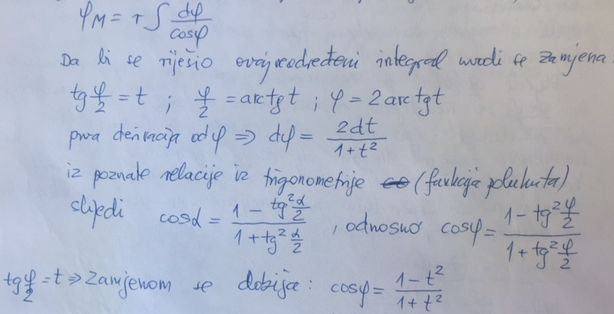 φM = r ∫ dφ/cosφ
Da bi se riješio ovaj neodređeni integral uvodi se zamjena:
tg φ/2 = t ; φ/2 = arctgt ; φ = 2arctgt
prva derivacija od φ ⇒ dφ = 2dt/(1+t²)
iz poznate relacije iz trigonometrije (funkcija polukuta)
slijedi cosα = (1 - tg² α/2)/(1 + tg² α/2) , odnosno cosφ = (1 - tg² φ/2)/(1 + tg² φ/2)
tg φ/2 = t ⇒ Zamjenom se dobija : cosφ = (1 - t²)/(1 + t²)